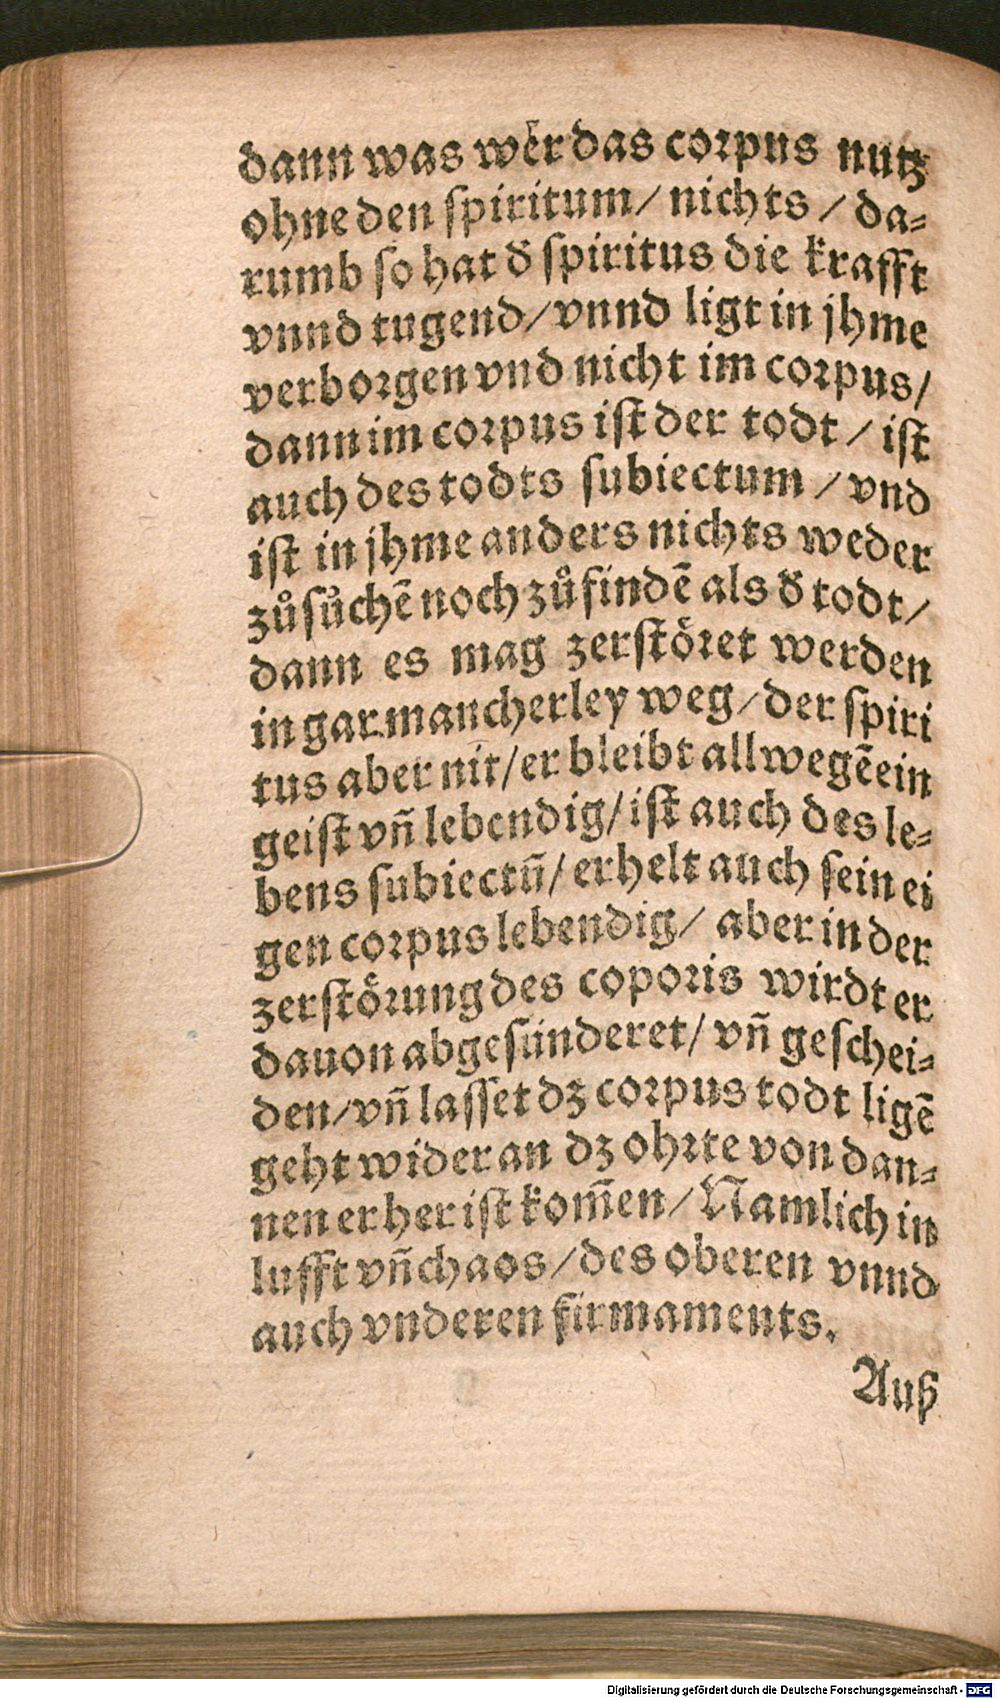 dann was wer̈ das corpus nutz
ohne den spiritum / nichts / da⸗
rumb so hat d̕ spiritus die krafft
vnnd tugend / vnnd ligt in jhme
verborgen vnd nicht im corpus /
dann im corpus ist der todt / ist
auch des todts subiectum / vnd
ist in jhme anders nichts weder
zůsůchē noch zůfindē als d̕ todt /
dann es mag zerstöret werden
in gar mancherley weg / der spiri
tus aber nit / er bleibt allwegē ein
geist vn̄ lebendig / ist auch des le⸗
bens subiectū / erhelt auch sein ei
gen corpus lebendig / aber in der
zerstörung des coporis wirdt er
dauon abgesünderet / vn̄ geschei⸗
den / vn̄ lasset dz corpus todt ligē
geht wider an dz ohrte von dan⸗
nen er her ist kom̄en / Namlich in
lufft vn̄ chaos / des oberen vnnd
auch vnderen firmaments.
Auß
Digitalisierung gefördert durch die Deutsche Forschungsgemeinschaft - DFG